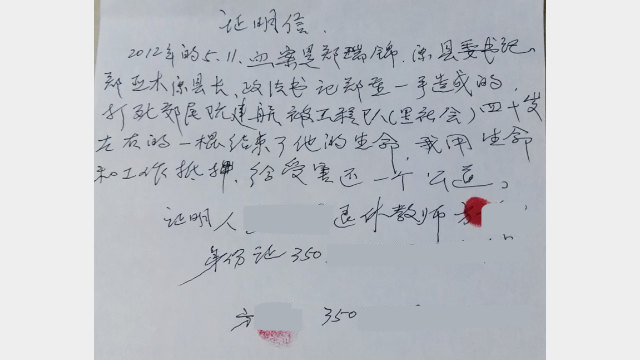 证明信.
2012年的5.11.血案是郑瑞锦.原县委书记、
郑亚木原县长、政法书记郑 一手造成的,
打死郊尾阮建航被工程队人(黑社会)四十岁
左右的一棍结束了他的生命,我用生命
和工作抵押,给受害还一个公道。
证明人、 退休教师 方
身份证350
方 350